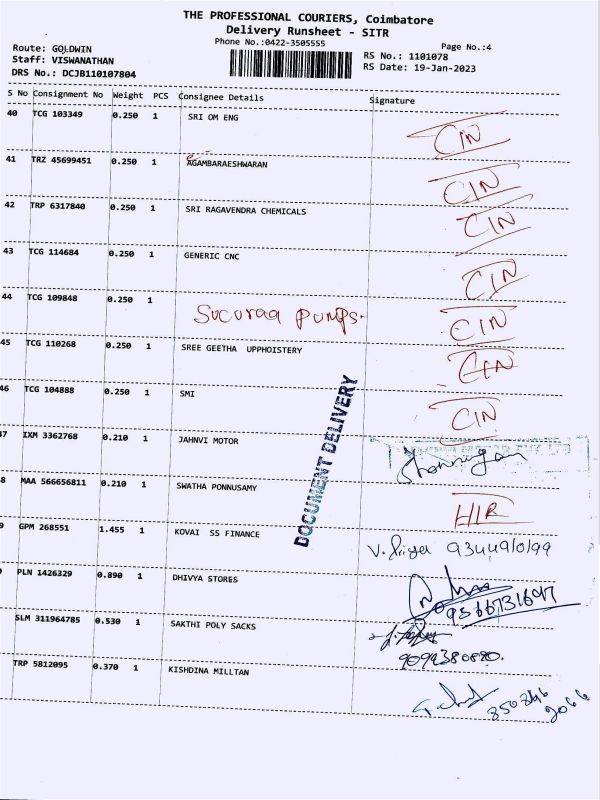 THE PROFESSIONAL COURIERS, Coimbatore
Delivery Runsheet - SITR
Phone No.:0422-3505555
Page No.:4
Route: GOLDWIN
Staff: VISWANATHAN
DRS No.: DCJB110107804
RS No.: 1101078
RS Date: 19-Jan-2023
S No Consignment No Weight PCS Consignee Details Signature
40 TCG 103349 0.250 1 SRI OM ENG CIN
41 TRZ 45699451 0.250 1 AGAMBARAESHWARAN CIN
42 TRP 6317840 0.250 1 SRI RAGAVENDRA CHEMICALS CIN
43 TCG 114684 0.250 1 GENERIC CNC CIN
44 TCG 109848 0.250 1 Sucuraa pumps. CIN
45 TCG 110268 0.250 1 SREE GEETHA UPPHOISTERY CIN
46 TCG 104888 0.250 1 SMI CIN
47 IXM 3362768 0.210 1 JAHNVI MOTOR
8 MAA 566656811 0.210 1 SWATHA PONNUSAMY HIR
9 GPM 268551 1.455 1 KOVAI SS FINANCE V. Priya 9344910199
PLN 1426329 0.890 1 DHIVYA STORES 9566731647
SLM 311964785 0.530 1 SAKTHI POLY SACKS
9094380880.
TRP 5812095 0.370 1 KISHDINA MILLTAN
DOCUMENT DELIVERY